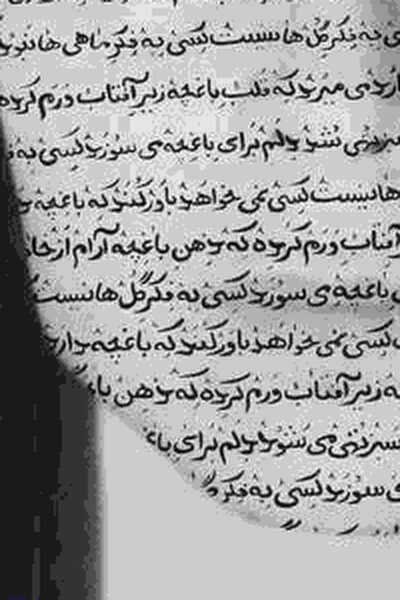 به فکر گل ها نیست کسی به فکر ماهی ها
می میرد که قلب باغچه زیر آفتاب ورم کرده
شود دلم برای باغچه می سوزد کسی به
ها نیست کسی نمی خواهد باور کند که باغچه
آفتاب ورم کرده که ذهن باغچه آرام از
باغچه می سوزد کسی به فکر گل ها نیست
کسی نمی خواهد باور کند که باغچه دارد
زیر آفتاب ورم کرده که ذهن باغ
می شود دلم برای باغ
سوزد کسی به فکر